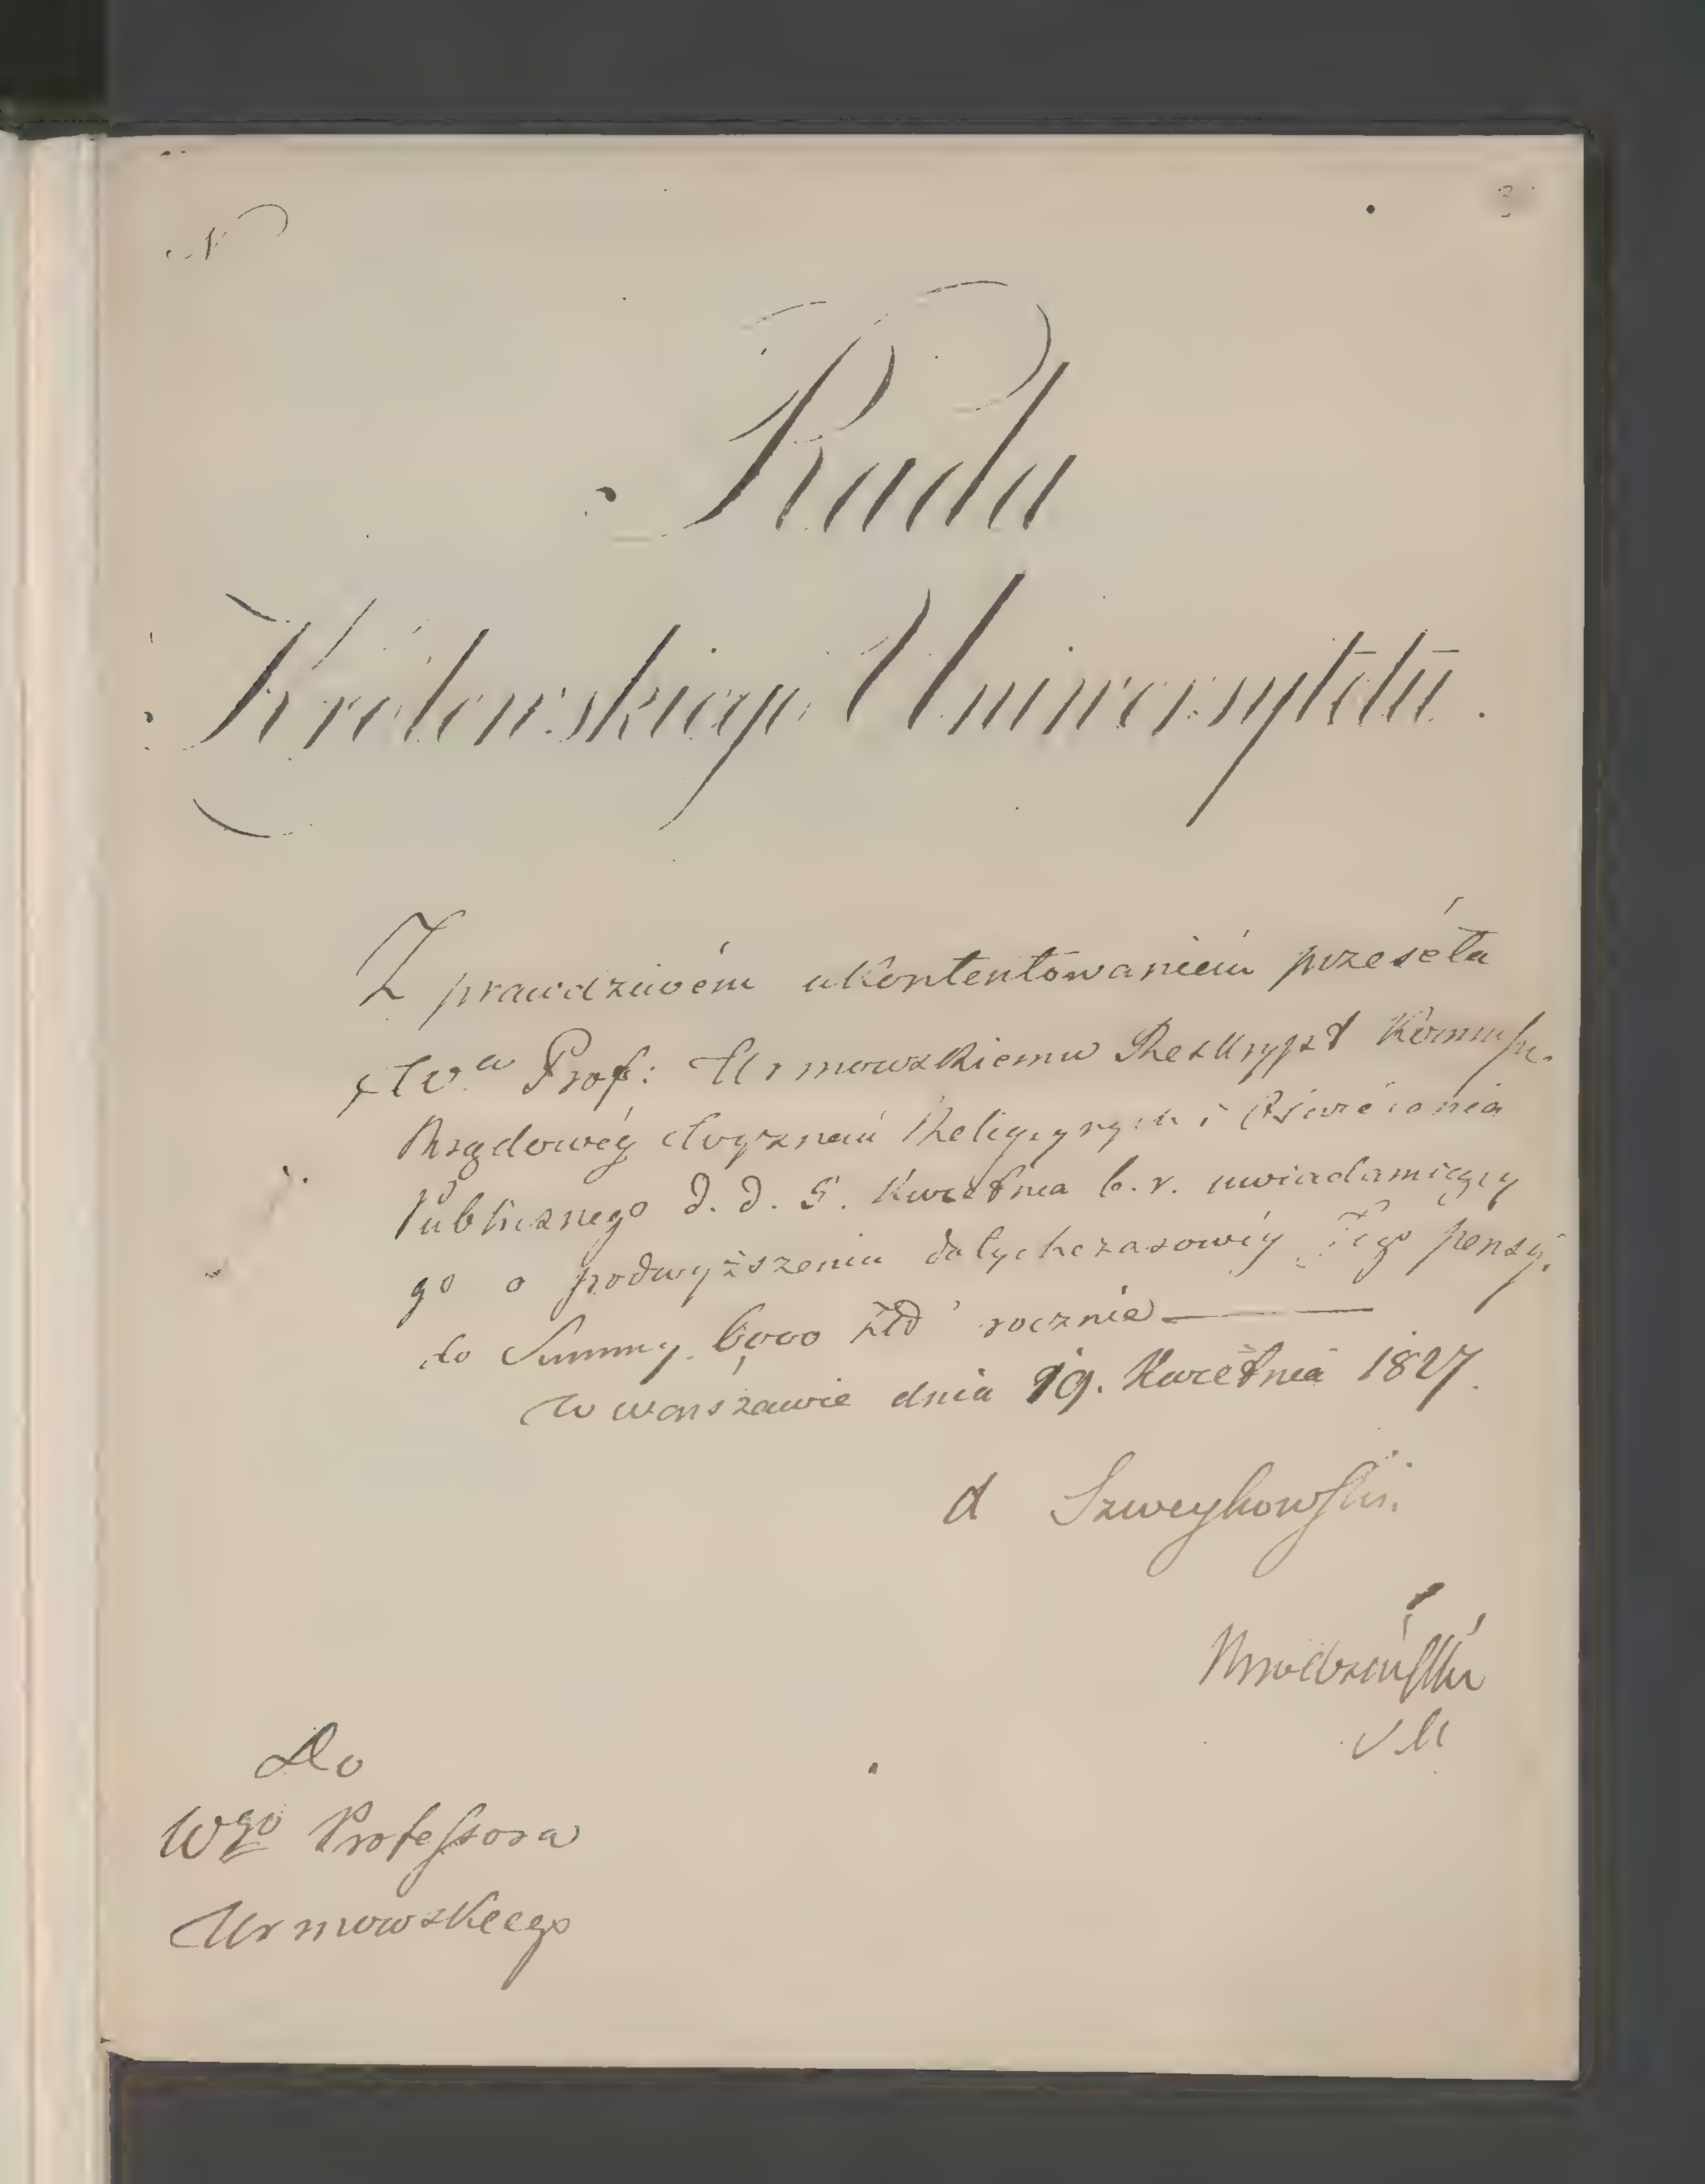 N
3
Rada
Królewskiego Uniwersytetu.
Z prawdziwém ukontentowaniem przeséła
Wu Prof: Urmowskiemu Reskrypt Kommissyi
Rządowéy Wyznań Religiynych i Oświecenia
Publicznego d. d. 5. Kwietnia b. r. uwiadamiaiący
go o podwyższeniu dotychczasowéy Jego pensyi
do Summy 6,000 Złł rocznie
w Warszawie dnia 19. Kwietnia 1827.
Szweykowski.
Brodziński
Do
Wgo Professora
Urmowskiego